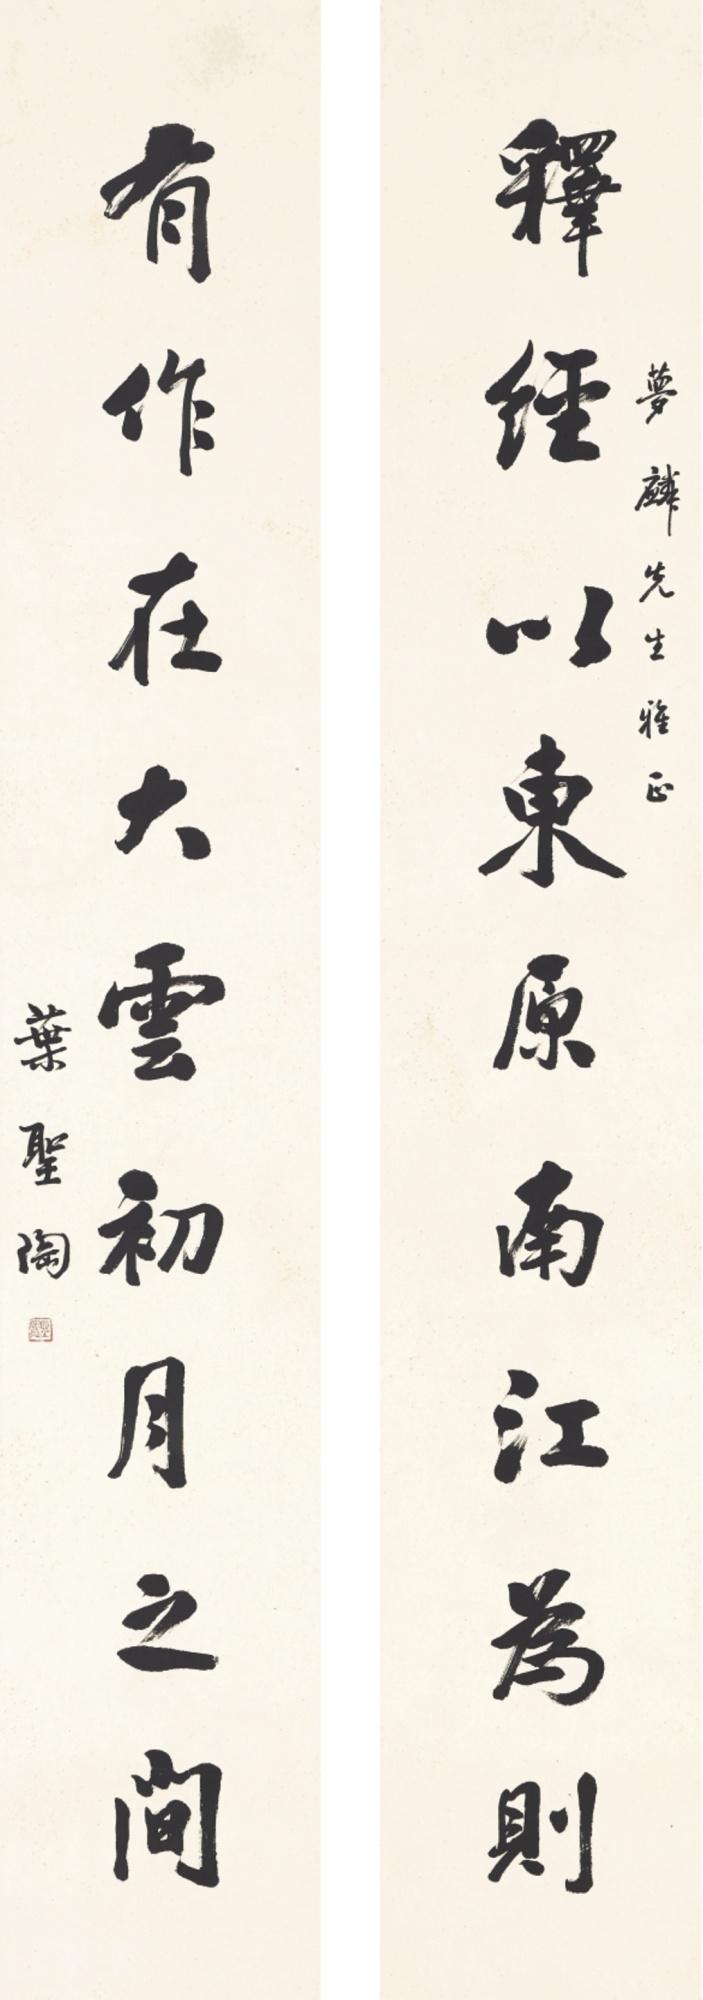 夢麟先生雅正
釋經以東原南江為則
有作在大雲初月之間
葉聖陶